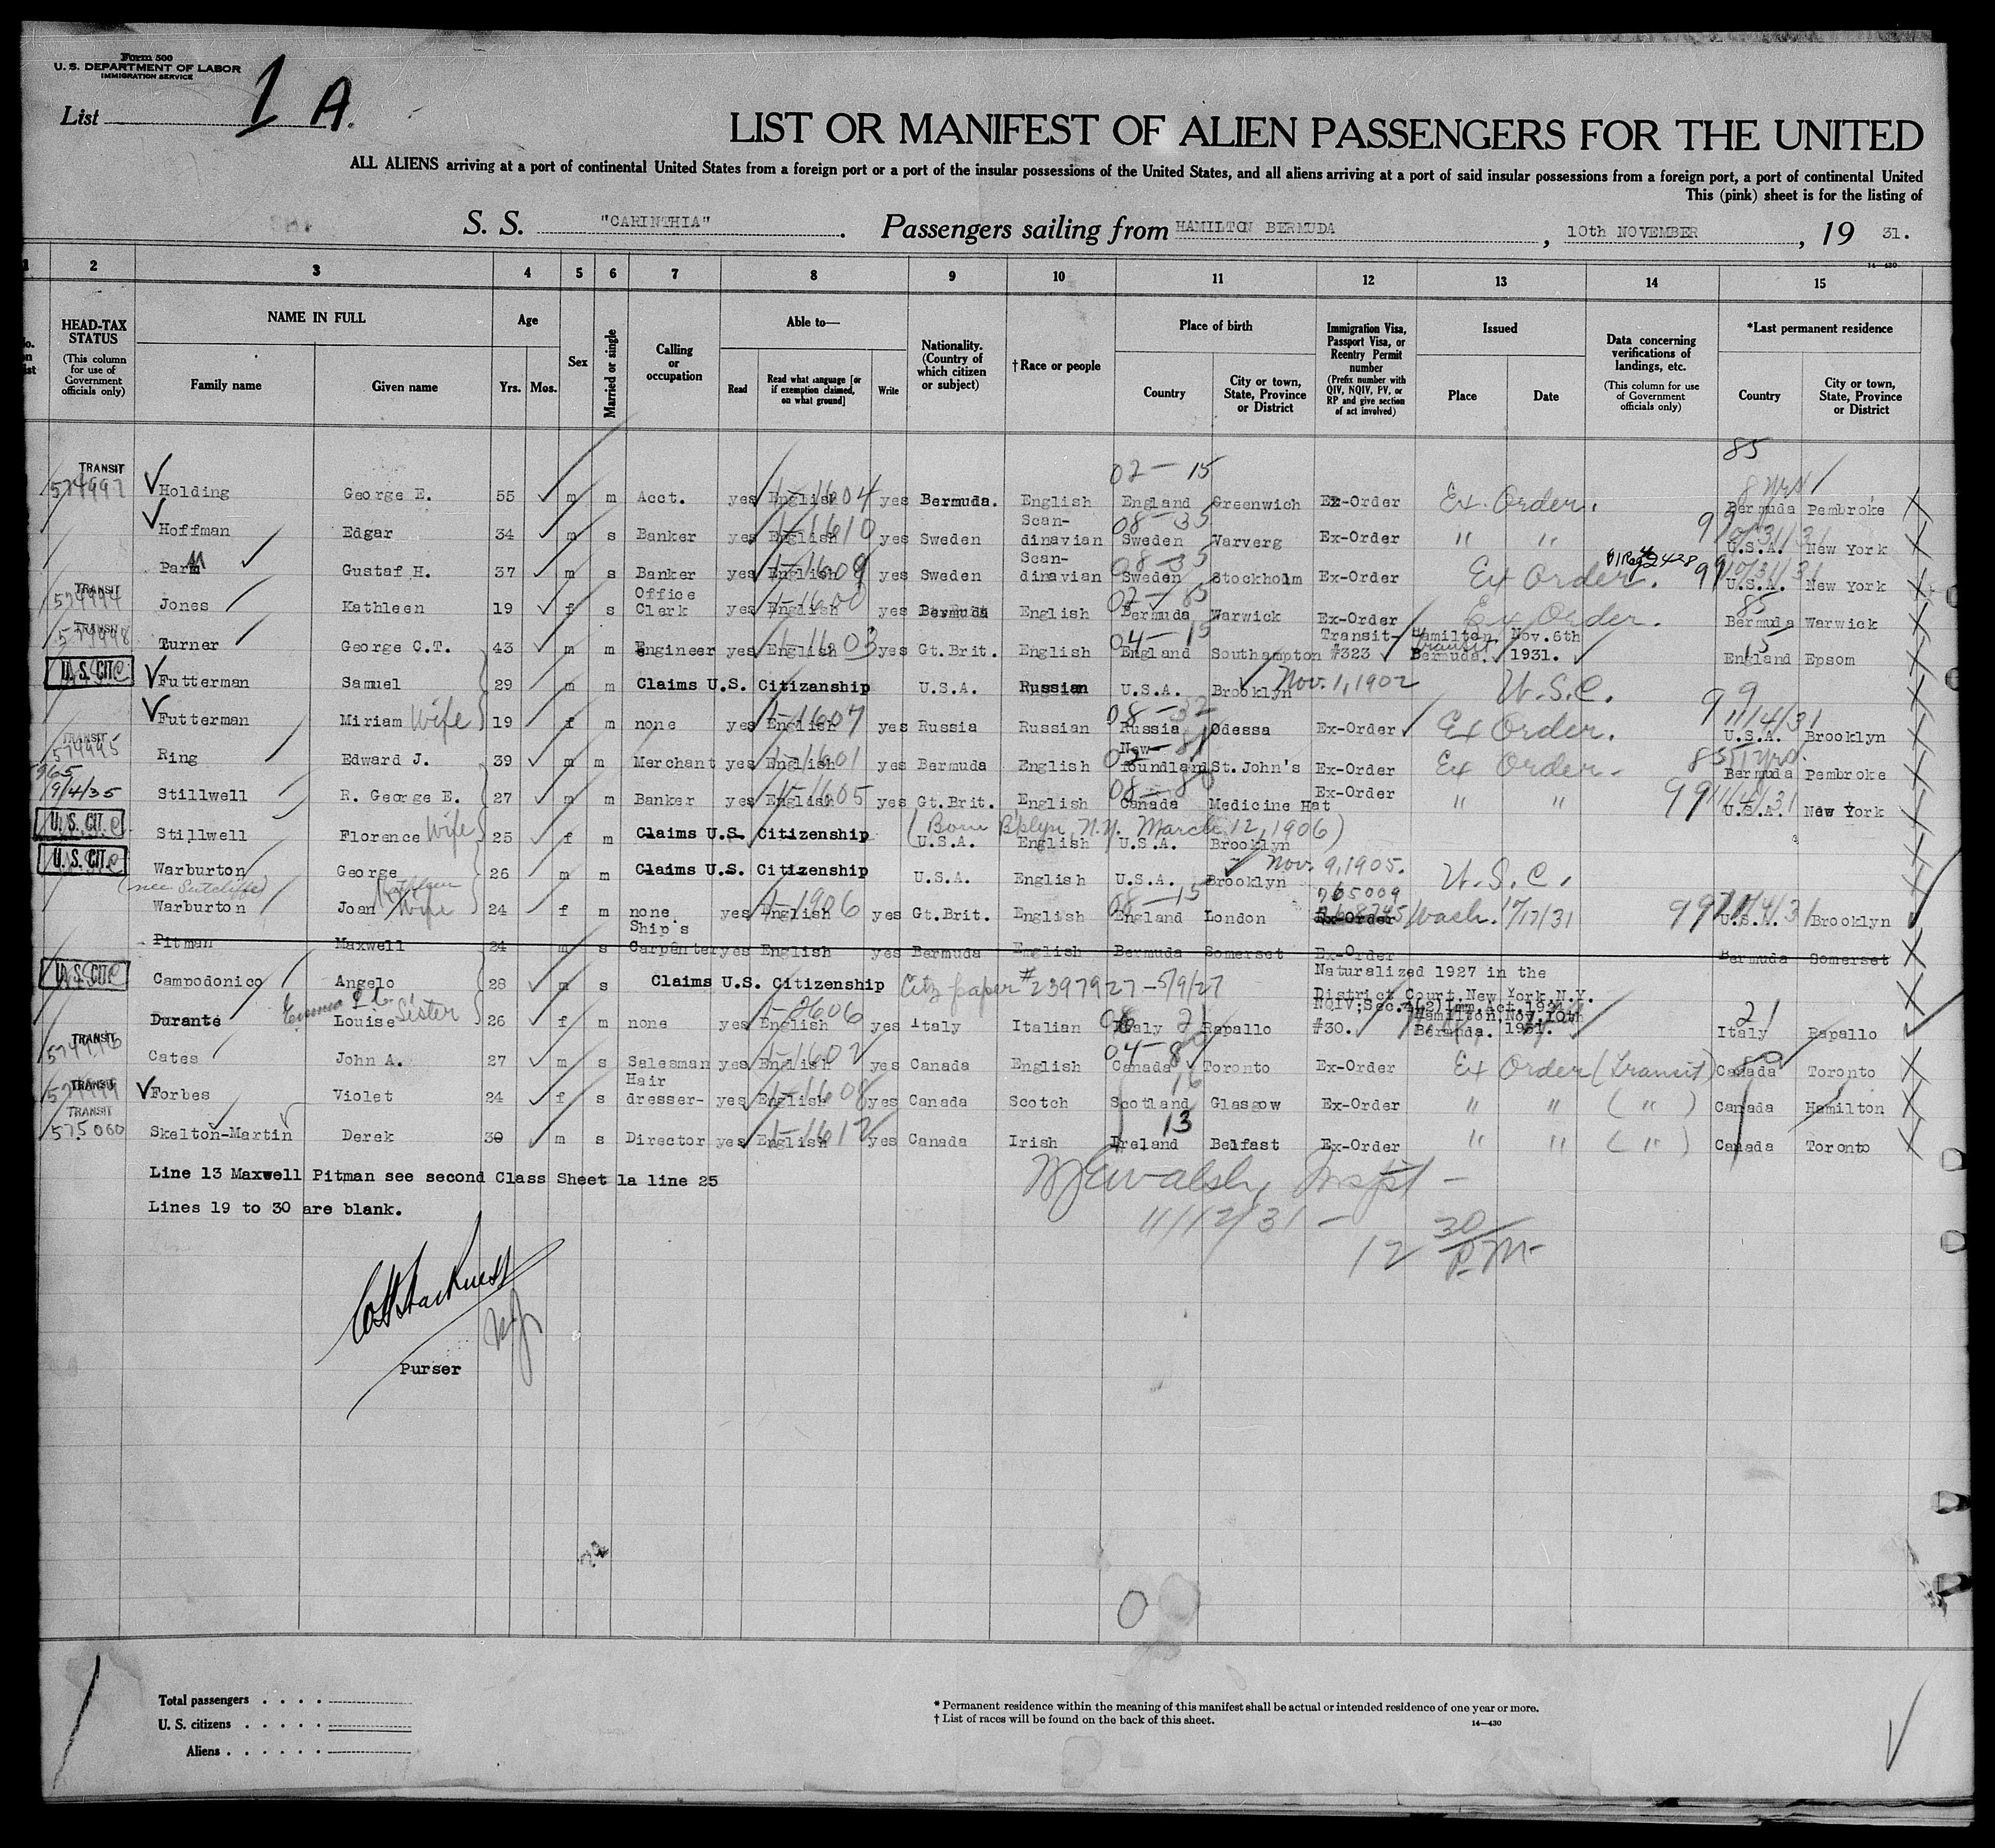 Form 500
U. S. DEPARTMENT OF LABOR
IMMIGRATION SERVICE
List 1 A.
LIST OR MANIFEST OF ALIEN PASSENGERS FOR THE UNITED
ALL ALIENS arriving at a port of continental United States from a foreign port or a port of the insular possessions of the United States, and all aliens arriving at a port of said insular possessions from a foreign port, a port of continental United
This (pink) sheet is for the listing of
S. S. "CARINTHIA". Passengers sailing from HAMILTON BERMUDA, 10th NOVEMBER, 19 31.
14—430
1 2 3 4 5 6 7 8 9 10 11 12 13 14 15
HEAD-TAX STATUS (This column for use of Government officials only)
NAME IN FULL Family name Given name
Age Yrs. Mos.
Sex
Married or single
Calling or occupation
Able to— Read Read what language [or if exemption claimed, on what ground] Write
Nationality. (Country of which citizen or subject)
†Race or people
Place of birth Country City or town, State, Province or District
Immigration Visa, Passport Visa, or Reentry Permit number (Prefix number with QIV, NQIV, PV, or RP and give section of act involved)
Issued Place Date
Data concerning verifications of landings, etc. (This column for use of Government officials only)
*Last permanent residence Country City or town, State, Province or District
02 — 15 85
TRANSIT 574997 Holding George E. 55 m m Acct. yes English 1-1604 yes Bermuda. English England Greenwich Ex-Order Ex. Order. 8 yrs Bermuda Pembroke
Hoffman Edgar 34 m s Banker yes English 1-1610 yes Sweden Scandinavian 08-35 Sweden Varverg Ex-Order " " 99 10/31/31 U.S.A. New York
Parm Gustaf H. 37 m s Banker yes English 1-1609 yes Sweden Scandinavian 08-35 Sweden Stockholm Ex-Order Ex Order. 99 10/31/31 U.S.A. New York
TRANSIT 574994 Jones Kathleen 19 f s Office Clerk yes English 1-1600 yes Bermuda English 02-85 Bermuda Warwick Ex-Order Ex Order. 85 Bermuda Warwick
TRANSIT 574998 Turner George C.T. 43 m m Engineer yes English 1-1603 yes Gt.Brit. English 04-15 England Southampton Transit- #323 Hamilton, Bermuda. Transit Nov.6th 1931. 15 England Epsom
U. S. CIT Futterman Samuel 29 m m Claims U.S. Citizanship U.S.A. Russian U.S.A. Brooklyn Nov. 1, 1902 U.S.C.
Futterman Miriam Wife 19 f m none yes English 1-1607 yes Russia Russian 08-32 Russia Odessa Ex-Order Ex Order. 99 11/4/31 U.S.A. Brooklyn
TRANSIT 574995 Ring Edward J. 39 m m Merchant yes English 1-1601 yes Bermuda English 02-81 Newfoundland St.John's Ex-Order Ex Order. 85 Bermuda Pembroke
965 9/4/35 Stillwell R. George E. 27 m m Banker yes English 1-1605 yes Gt.Brit. English 08-80 Canada Medicine Hat Ex-Order " " 99 11/4/31 U.S.A. New York
U. S. CIT Stillwell Florence Wife 25 f m Claims U.S. Citizenship (Born Bklyn, N.Y. March 12, 1906) U.S.A. English U.S.A. Brooklyn
U. S. CIT Warburton George 26 m m Claims U.S. Citizenship U.S.A. English U.S.A. Brooklyn Nov. 9, 1905. U.S.C.
(nee Sutcliffe) Warburton Joan Kathleen Wife 24 f m none yes English 1-1906 yes Gt.Brit. English 08-15 England London 765009 Ex-Order Wash. 99 11/4/31 U.S.A. Brooklyn
Pitman Maxwell 24 m s Ship's Carpenter yes English yes Bermuda English Bermuda Somerset Ex-Order Bermuda Somerset
U. S. CIT Campodonico Angelo 28 m s Claims U.S. Citizenship Citz paper #2397927-5/9/27 Naturalized 1927 in the District Court, New York, N.Y.
Durante Emma Louise Sister 26 f m none yes English 1-2606 yes Italy Italian 08 21 Italy Rapallo NQIV;Sec.4(2)Imm.Act.1924 #30. Hamilton Bermuda. Nov.10th 1931. 21 Italy Rapallo
TRANSIT 574996 Cates John A. 27 m s Salesman yes English 1-1602 yes Canada English 04-80 Canada Toronto Ex-Order Ex Order (Transit) 80 Canada Toronto
TRANSIT 574999 Forbes Violet 24 f s Hair dresser- yes English 1-1608 yes Canada Scotch 16 Scotland Glasgow Ex-Order " " ( " ) Canada Hamilton
TRANSIT 575000 Skelton-Martin Derek 30 m s Director yes English 1-1612 yes Canada Irish 13 Ireland Belfast Ex-Order " " ( " ) Canada Toronto
Line 13 Maxwell Pitman see second Class Sheet 1a line 25
Lines 19 to 30 are blank.
Walsh, Inspt -
11/12/31 -
12 30 P.M.
Purser
Total passengers . . . .
U. S. citizens . . . . .
Aliens . . . . . .
* Permanent residence within the meaning of this manifest shall be actual or intended residence of one year or more.
† List of races will be found on the back of this sheet.
14—430